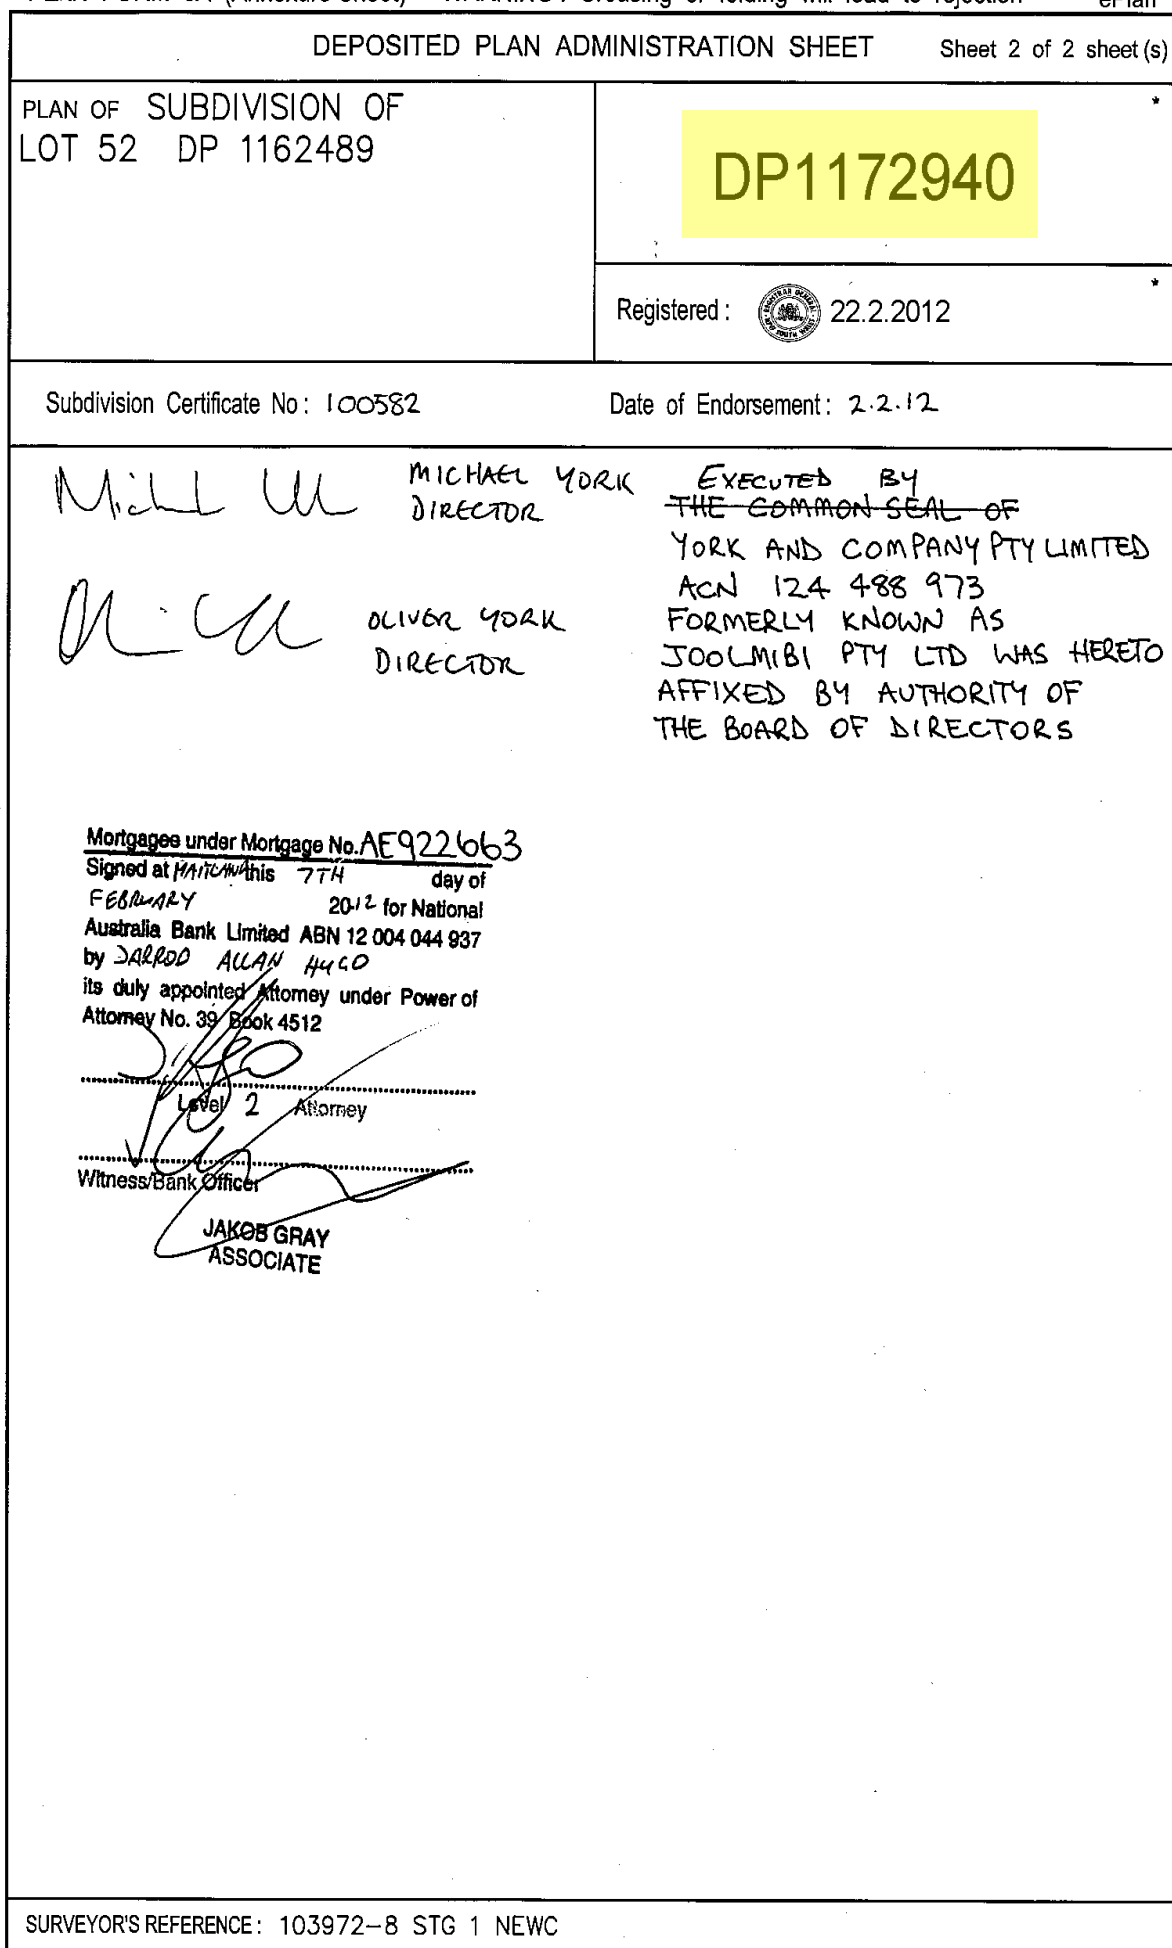 DEPOSITED PLAN ADMINISTRATION SHEET Sheet 2 of 2 sheet(s)
PLAN OF SUBDIVISION OF
LOT 52 DP 1162489
*
DP1172940
*
Registered: 22.2.2012
Subdivision Certificate No: 100582 Date of Endorsement: 2.2.12
MICHAEL YORK
DIRECTOR
OLIVER YORK
DIRECTOR
EXECUTED BY
THE COMMON SEAL OF
YORK AND COMPANY PTY LIMITED
ACN 124 488 973
FORMERLY KNOWN AS
JOOLMIBI PTY LTD WAS HERETO
AFFIXED BY AUTHORITY OF
THE BOARD OF DIRECTORS
Mortgagee under Mortgage No. AE922663
Signed at MAITLAND this 7TH day of
FEBRUARY 2012 for National
Australia Bank Limited ABN 12 004 044 937
by DARROD ALLAN HUGO
its duly appointed Attorney under Power of
Attorney No. 39 Book 4512
Level 2 Attorney
Witness/Bank Officer
JAKOB GRAY
ASSOCIATE
SURVEYOR'S REFERENCE: 103972-8 STG 1 NEWC